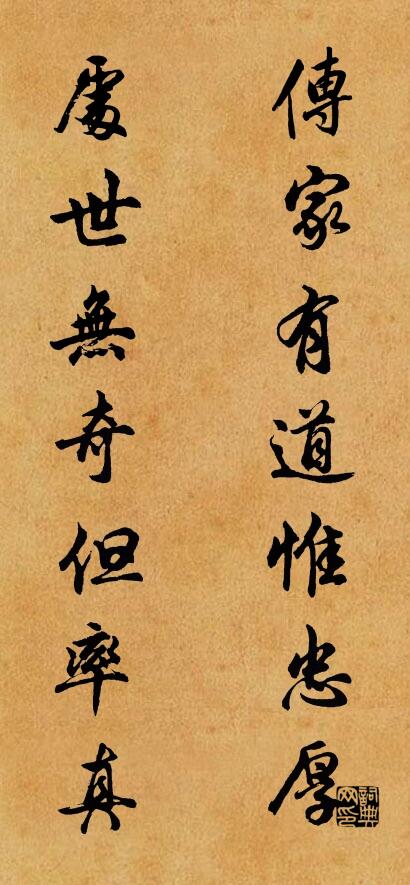 傳家有道惟忠厚
處世無奇但率真
詞典網印